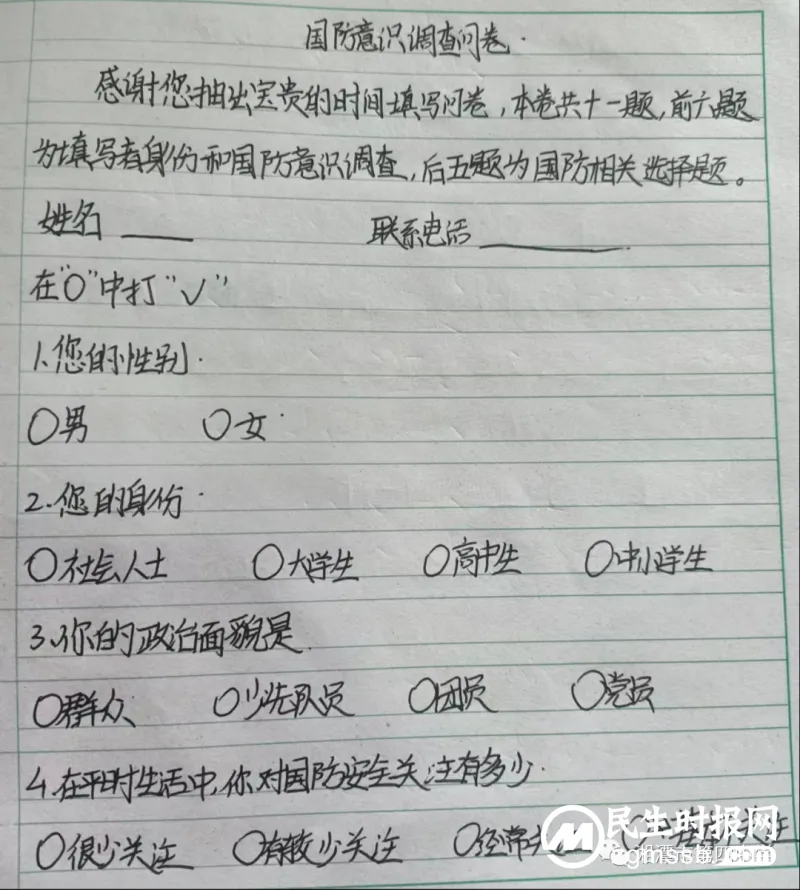 国防意识调查问卷.
感谢您抽出宝贵的时间填写问卷,本卷共十一题,前六题
为填写者身份和国防意识调查,后五题为国防相关选择题。
姓名____ 联系电话________
在“O”中打“√”
1.您的性别.
O男 O女
2.您的身份.
O社会人士 O大学生 O高中生 O中小学生
3.你的政治面貌是
O群众 O少先队员 O团员 O党员
4.在平时生活中,你对国防安全关注有多少.
O很少关注 O有较少关注 O经常
民生时报网